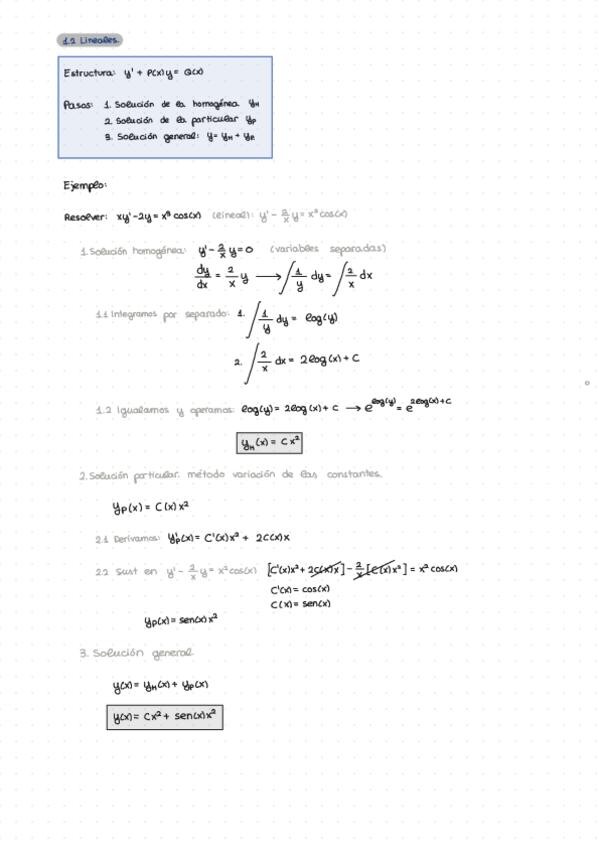 1.2 Lineales.
Estructura: y' + P(x)y = Q(x)
Pasos: 1. Solución de la homogénea yH
2. Solución de la particular yp
3. Solución general: y = yH + yp
Ejemplo:
Resolver: xy' - 2y = x³ cos(x) (lineal): y' - 2/x y = x² cos(x)
1. Solución homogénea: y' - 2/x y = 0 (variables separadas)
dy/dx = 2/x y ⟶ ∫ 1/y dy = ∫ 2/x dx
1.1 Integramos por separado: 1. ∫ 1/y dy = log(y)
2. ∫ 2/x dx = 2log(x) + C
1.2 Igualamos y operamos: log(y) = 2log(x) + C → e^log(y) = e^2log(x)+C
yH(x) = Cx²
2. Solución particular. método variación de las constantes.
yp(x) = C(x)x²
2.1 Derivamos: y'p(x) = C'(x)x² + 2C(x)x
2.2 Sust en y' - 2/x y = x² cos(x) [C'(x)x² + 2C(x)x] - 2/x [C(x)x²] = x² cos(x)
C'(x) = cos(x)
C(x) = sen(x)
yp(x) = sen(x)x²
3. Solución general
y(x) = yH(x) + yp(x)
y(x) = Cx² + sen(x)x²